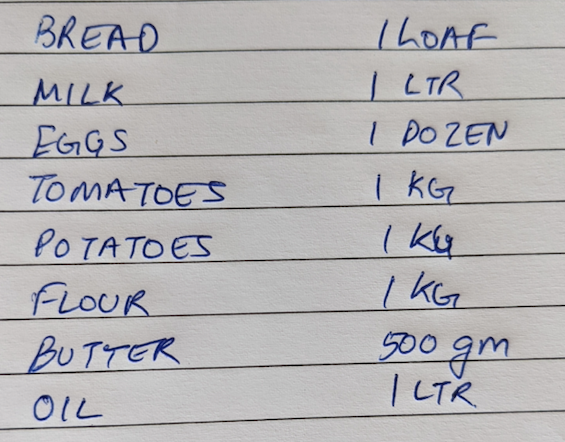 BREAD 1 LOAF
MILK 1 LTR
EGGS 1 DOZEN
TOMATOES 1 KG
POTATOES 1 KG
FLOUR 1 KG
BUTTER 500 gm
OIL 1 LTR